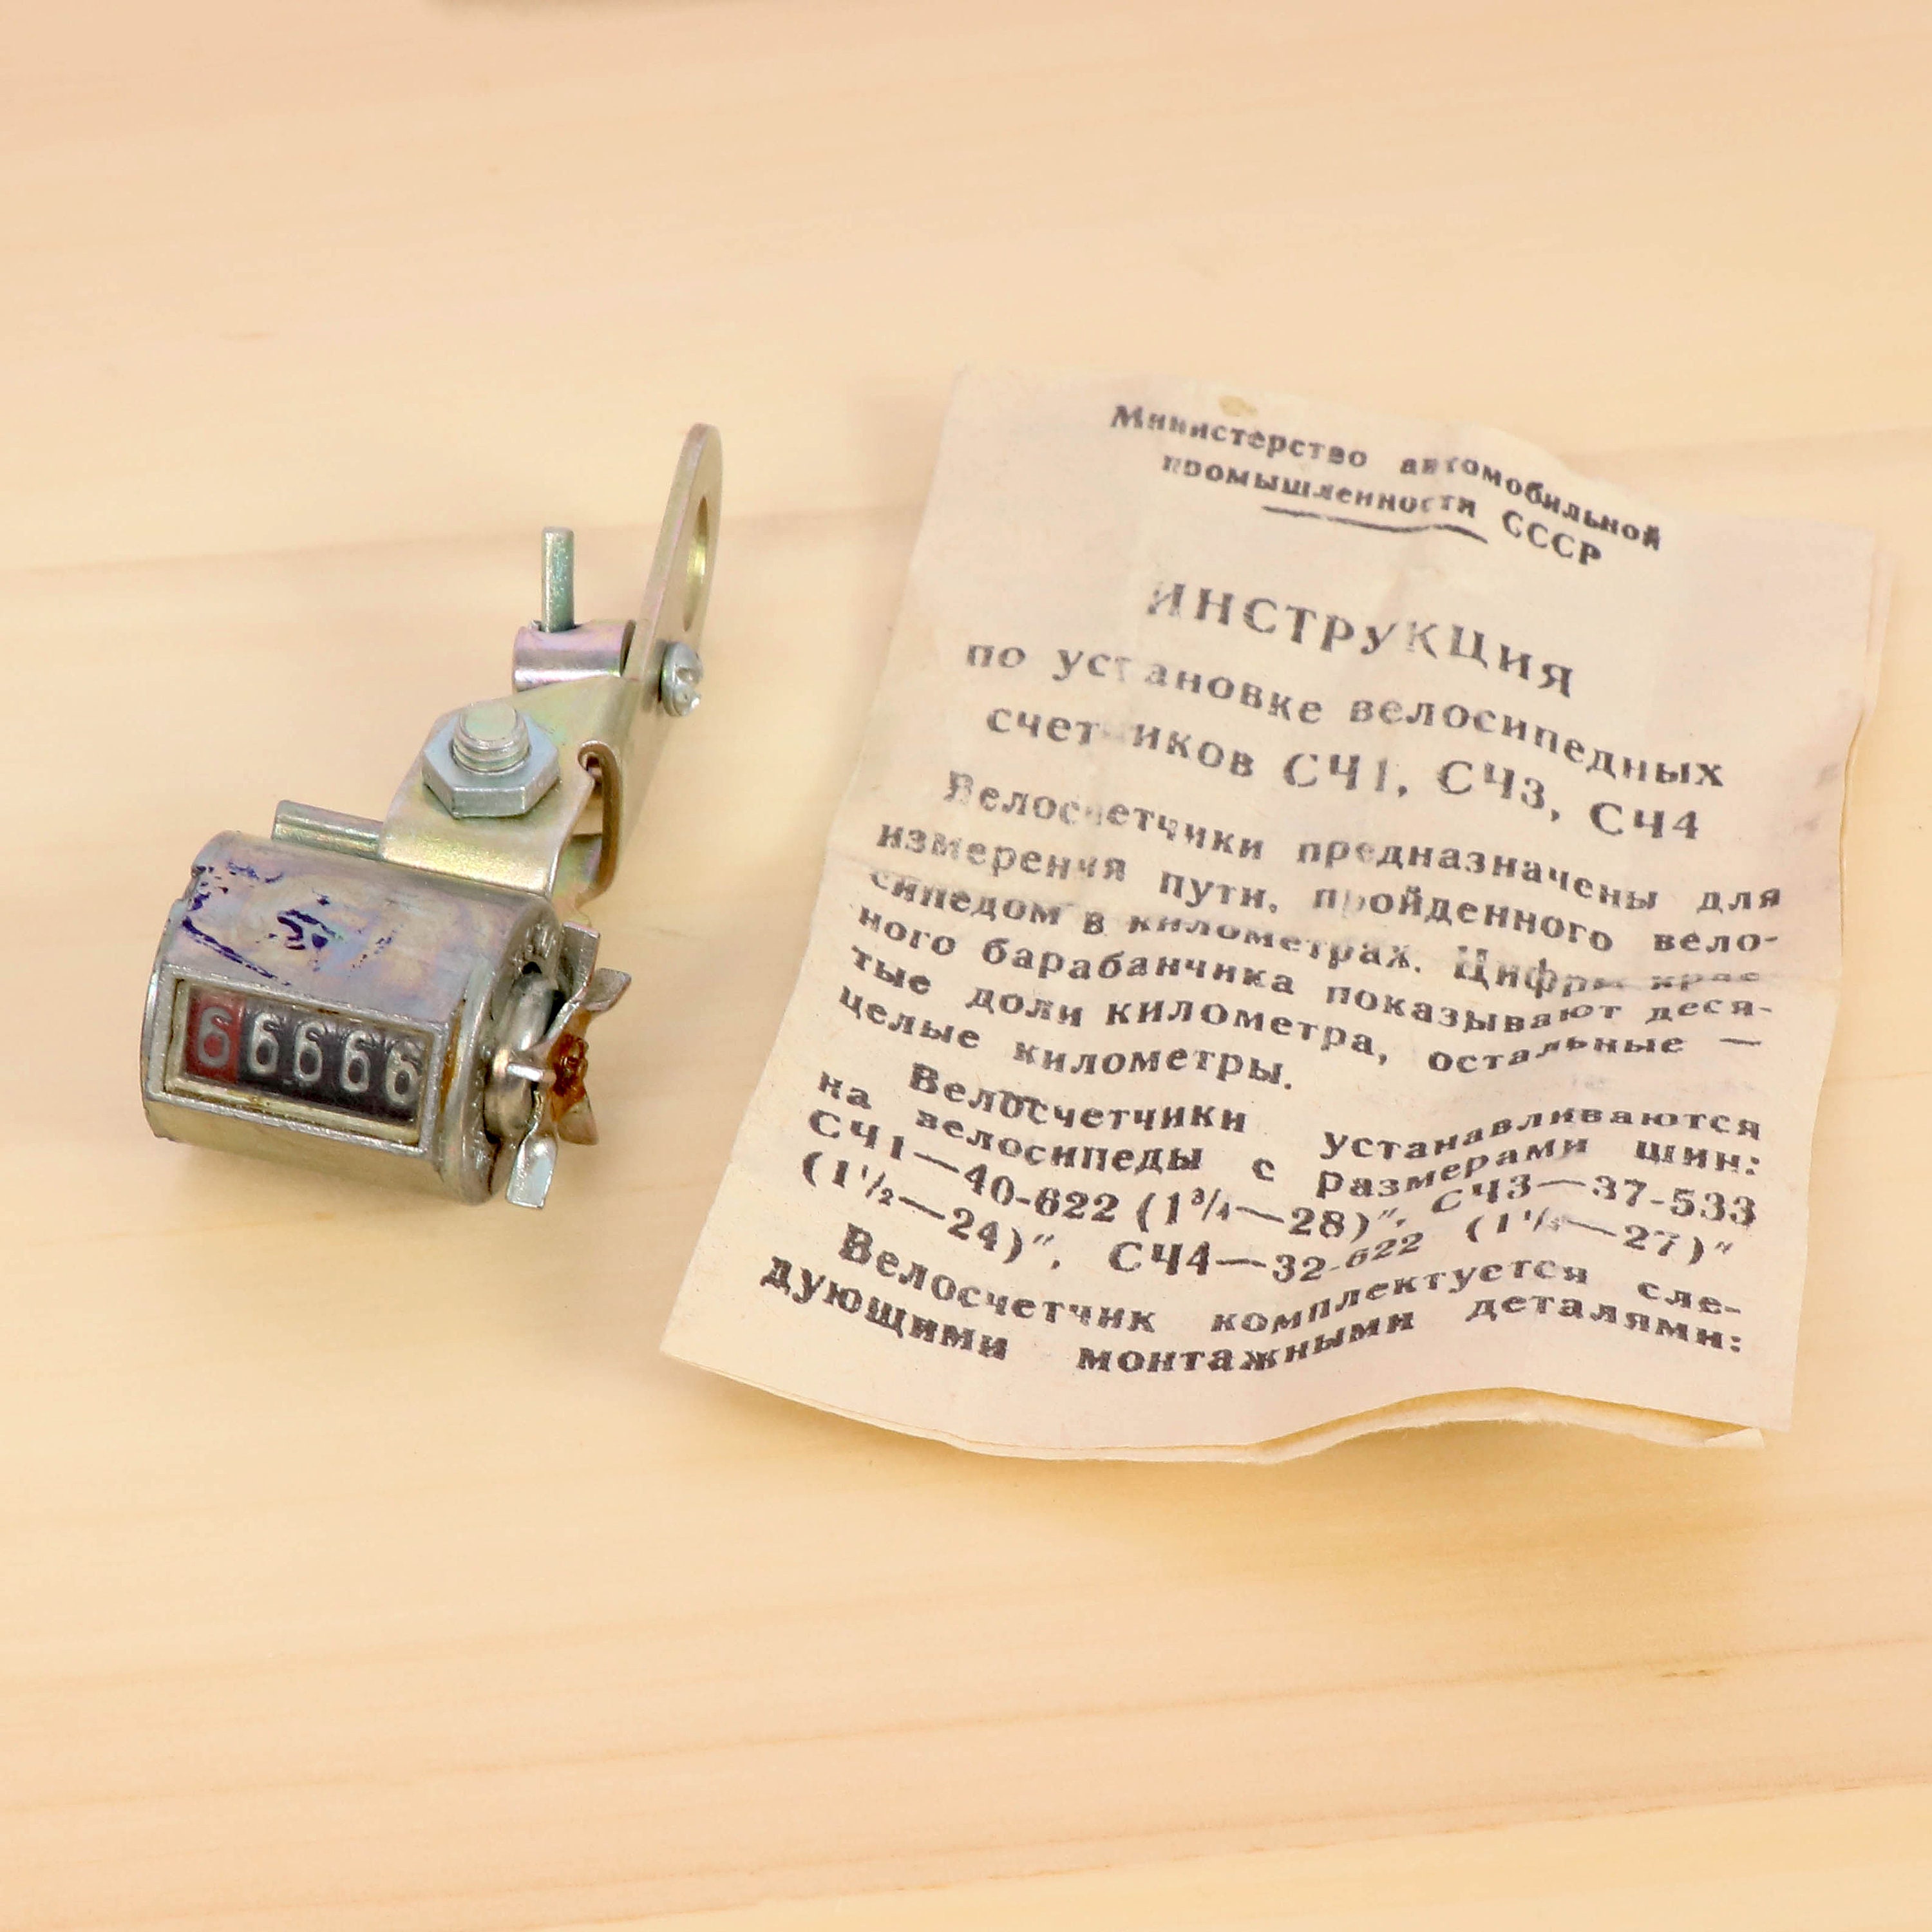 66666
Министерство автомобильной
промышленности СССР
ИНСТРУКЦИЯ
по установке велосипедных
счетчиков СЧ1, СЧ3, СЧ4
Велосчетчики предназначены для
измерения пути, пройденного вело-
сипедом в километрах. Цифры крас-
ного барабанчика показывают деся-
тые доли километра, остальные —
целые километры.
Велосчетчики устанавливаются
на велосипеды с размерами шин:
СЧ1—40-622 (1³/₄—28)″, СЧ3—37-533
(1¹/₂—24)″, СЧ4—32-622 (1¹/₄—27)″
Велосчетчик комплектуется сле-
дующими монтажными деталями: